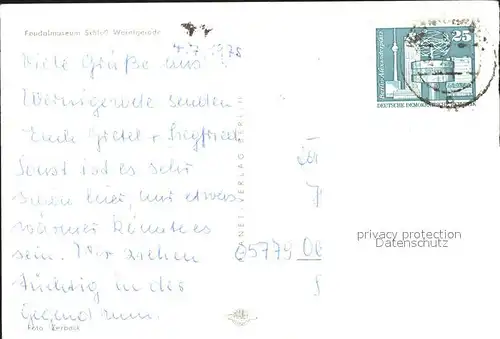 Feudalmuseum Schloß Wernigerode
4.7.1978
Viele Grüße aus
Wernigerode senden
Euch Gretel + Siegfried.
Sonst ist es sehr
schön hier, nur etwas
wärmer könnte es
sein. Wir ziehen
tüchtig in der
Gegend rum.
Foto
VERLAG BERLIN
25
Berlin, Alexanderplatz
DEUTSCHE DEMOKRATISCHE
privacy protection
Datenschutz